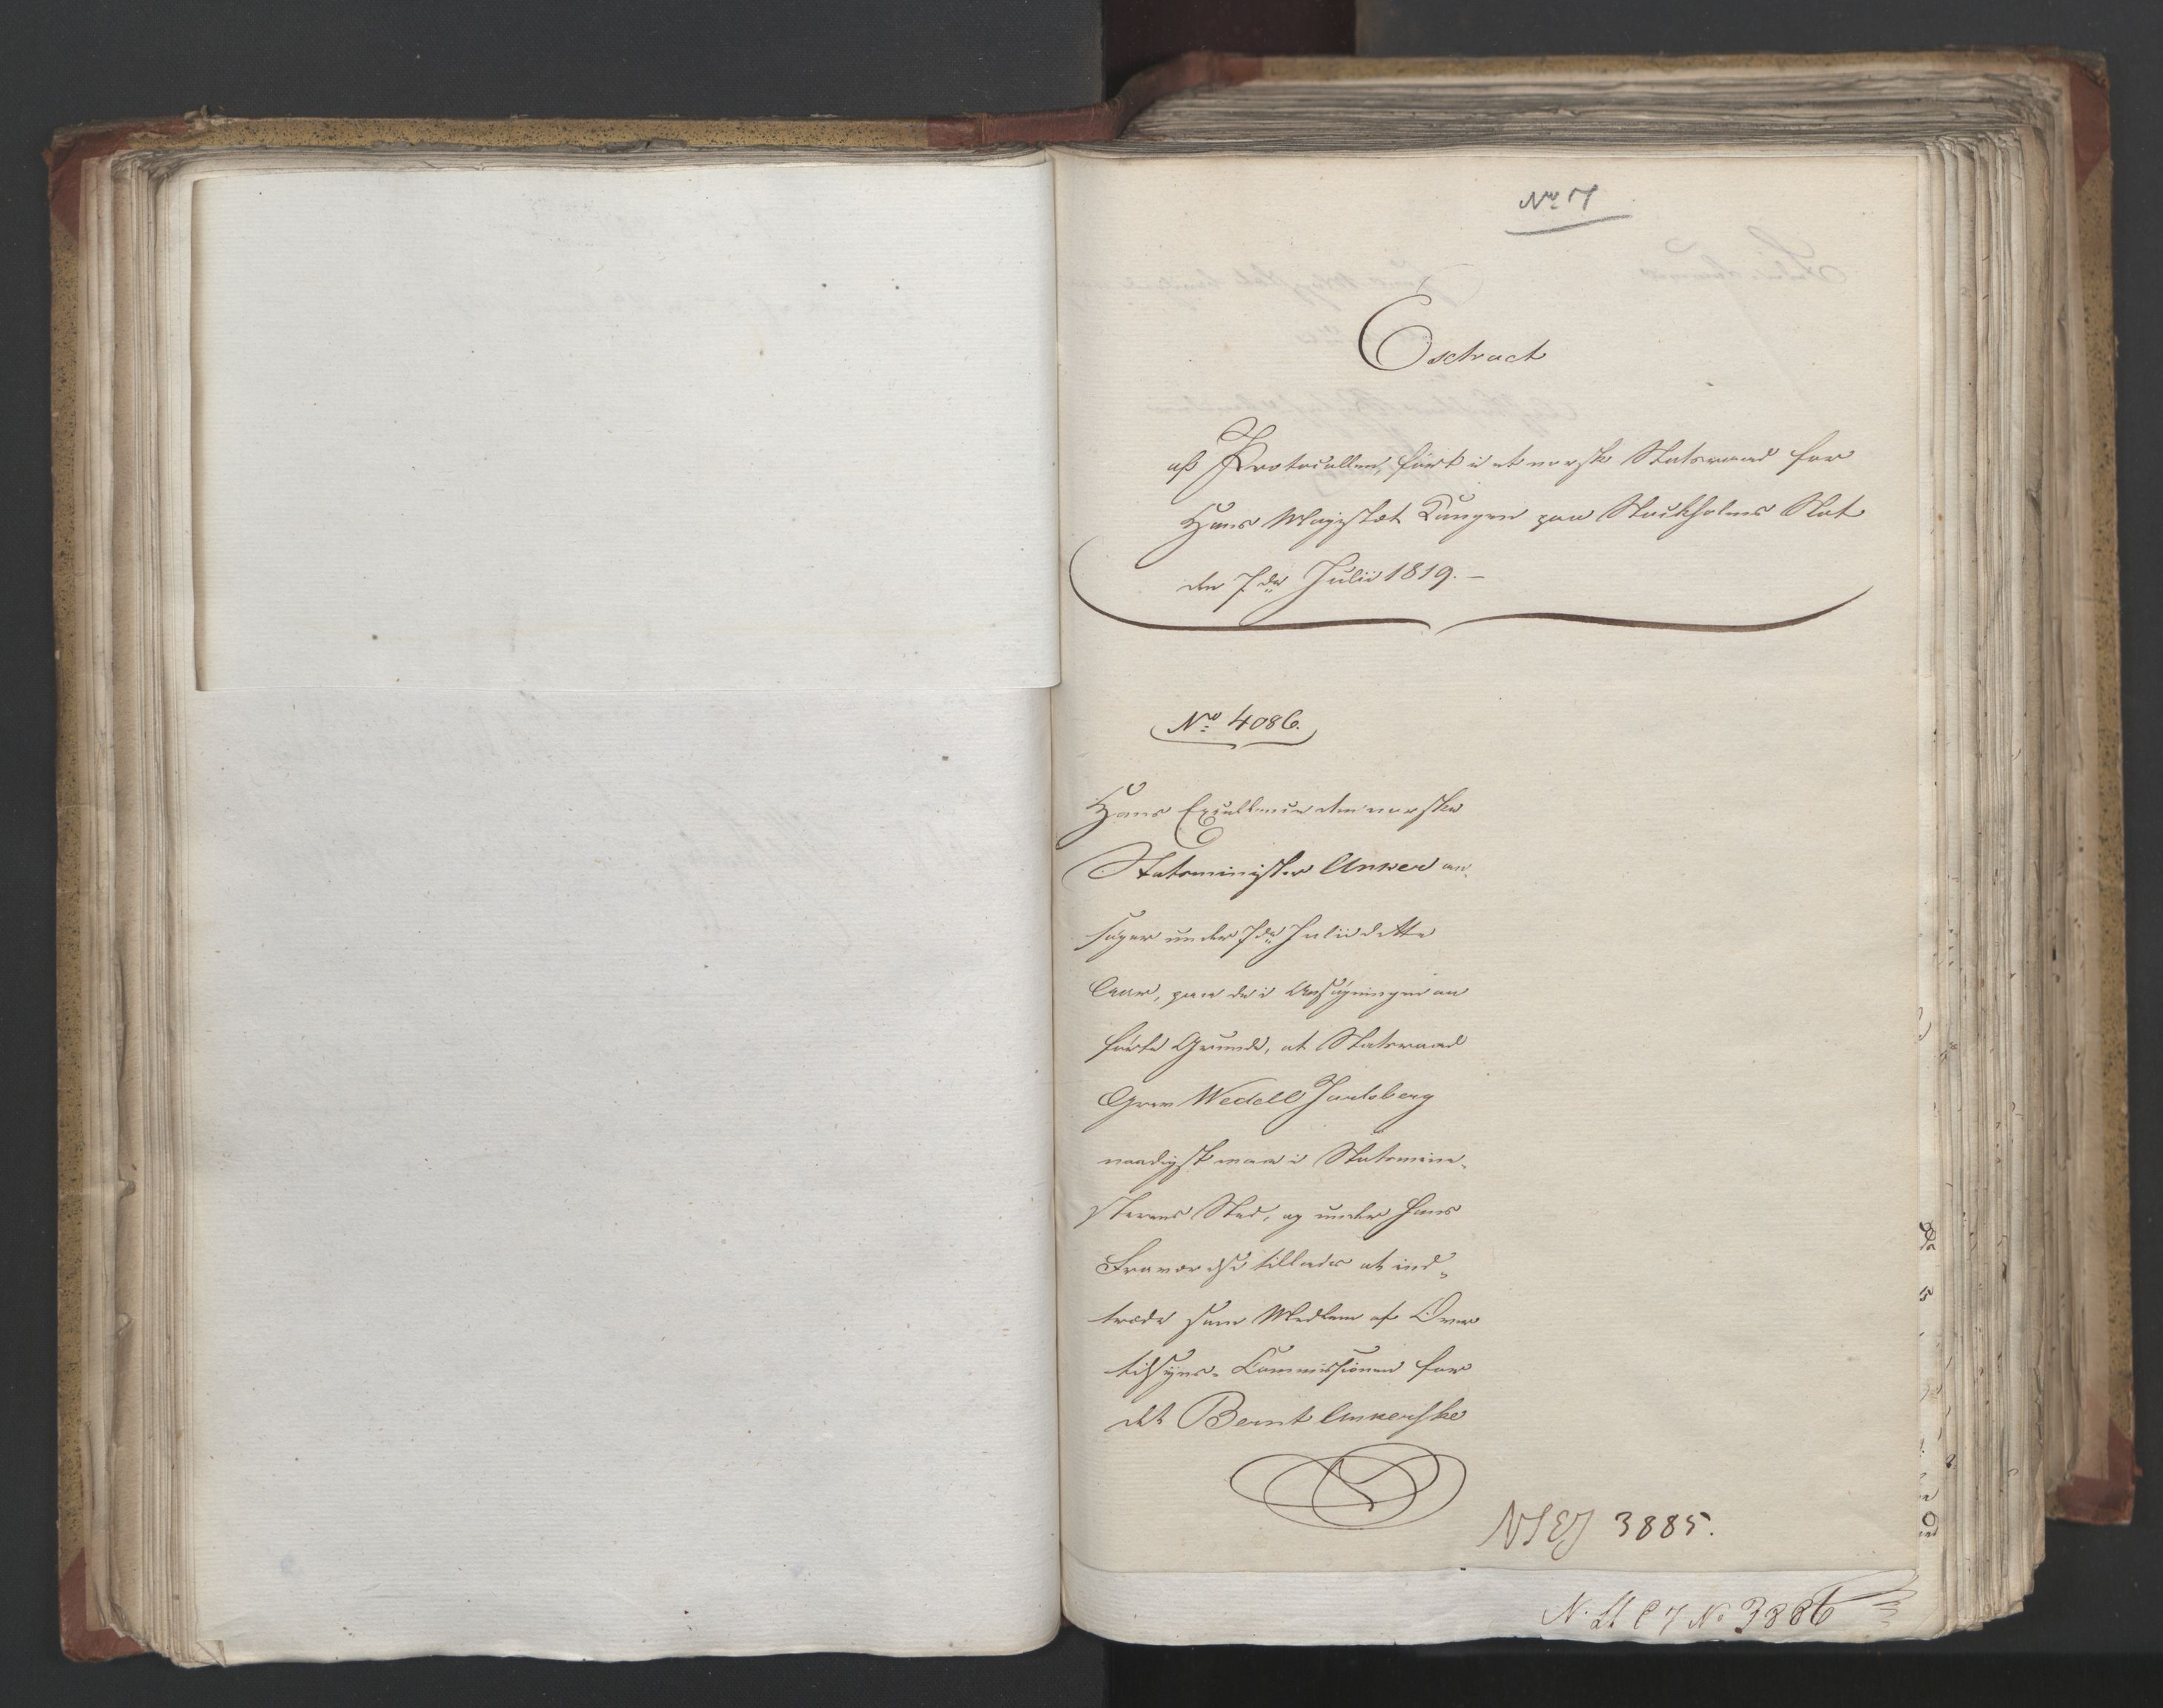 No 17
Extract
af Protocollen, ført i et norsk Statsraad for
Hans Majestæt Kongen paa Stockholms Slot
den 7de Julii 1819. –
No 4086.
Hans Excellence den norske
Statsminister Anker an-
søger under 7de Julii dette
Aar, paa de i Ansøgningen an
førte Grunde, at Statsraad
Grev Wedell Jarlsberg
naadigst maa i Statsmini-
sterens Sted, og under hans
Fraværelse tillades at ind-
træde som Medlem af Over
tilsyns-Commissionen for
det Bernt Ankerske
3885.
No 3886